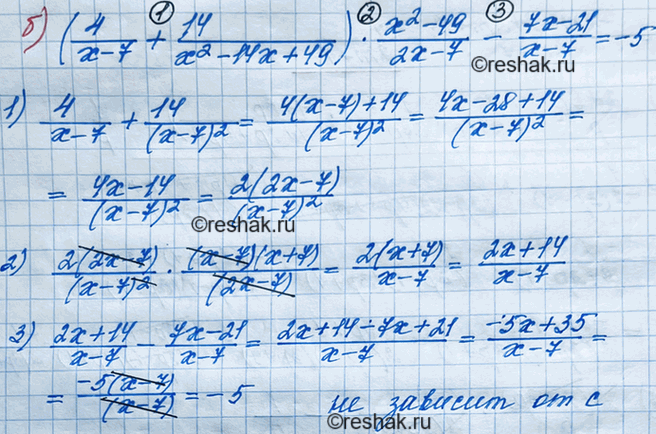 б) (4/(x-7) + 14/(x²-14x+49)) · (x²-49)/(2x-7) - (7x-21)/(x-7) = -5
① ② ③
©reshak.ru
1) 4/(x-7) + 14/(x-7)² = (4(x-7)+14)/(x-7)² = (4x-28+14)/(x-7)² =
= (4x-14)/(x-7)² = 2(2x-7)/(x-7)²
©reshak.ru
2) 2(2x-7)/(x-7)² · (x-7)(x+7)/(2x-7) = 2(x+7)/(x-7) = (2x+14)/(x-7)
3) (2x+14)/(x-7) - (7x-21)/(x-7) = (2x+14-7x+21)/(x-7) = (-5x+35)/(x-7) =
= -5(x-7)/(x-7) = -5 не зависит от с
©reshak.ru